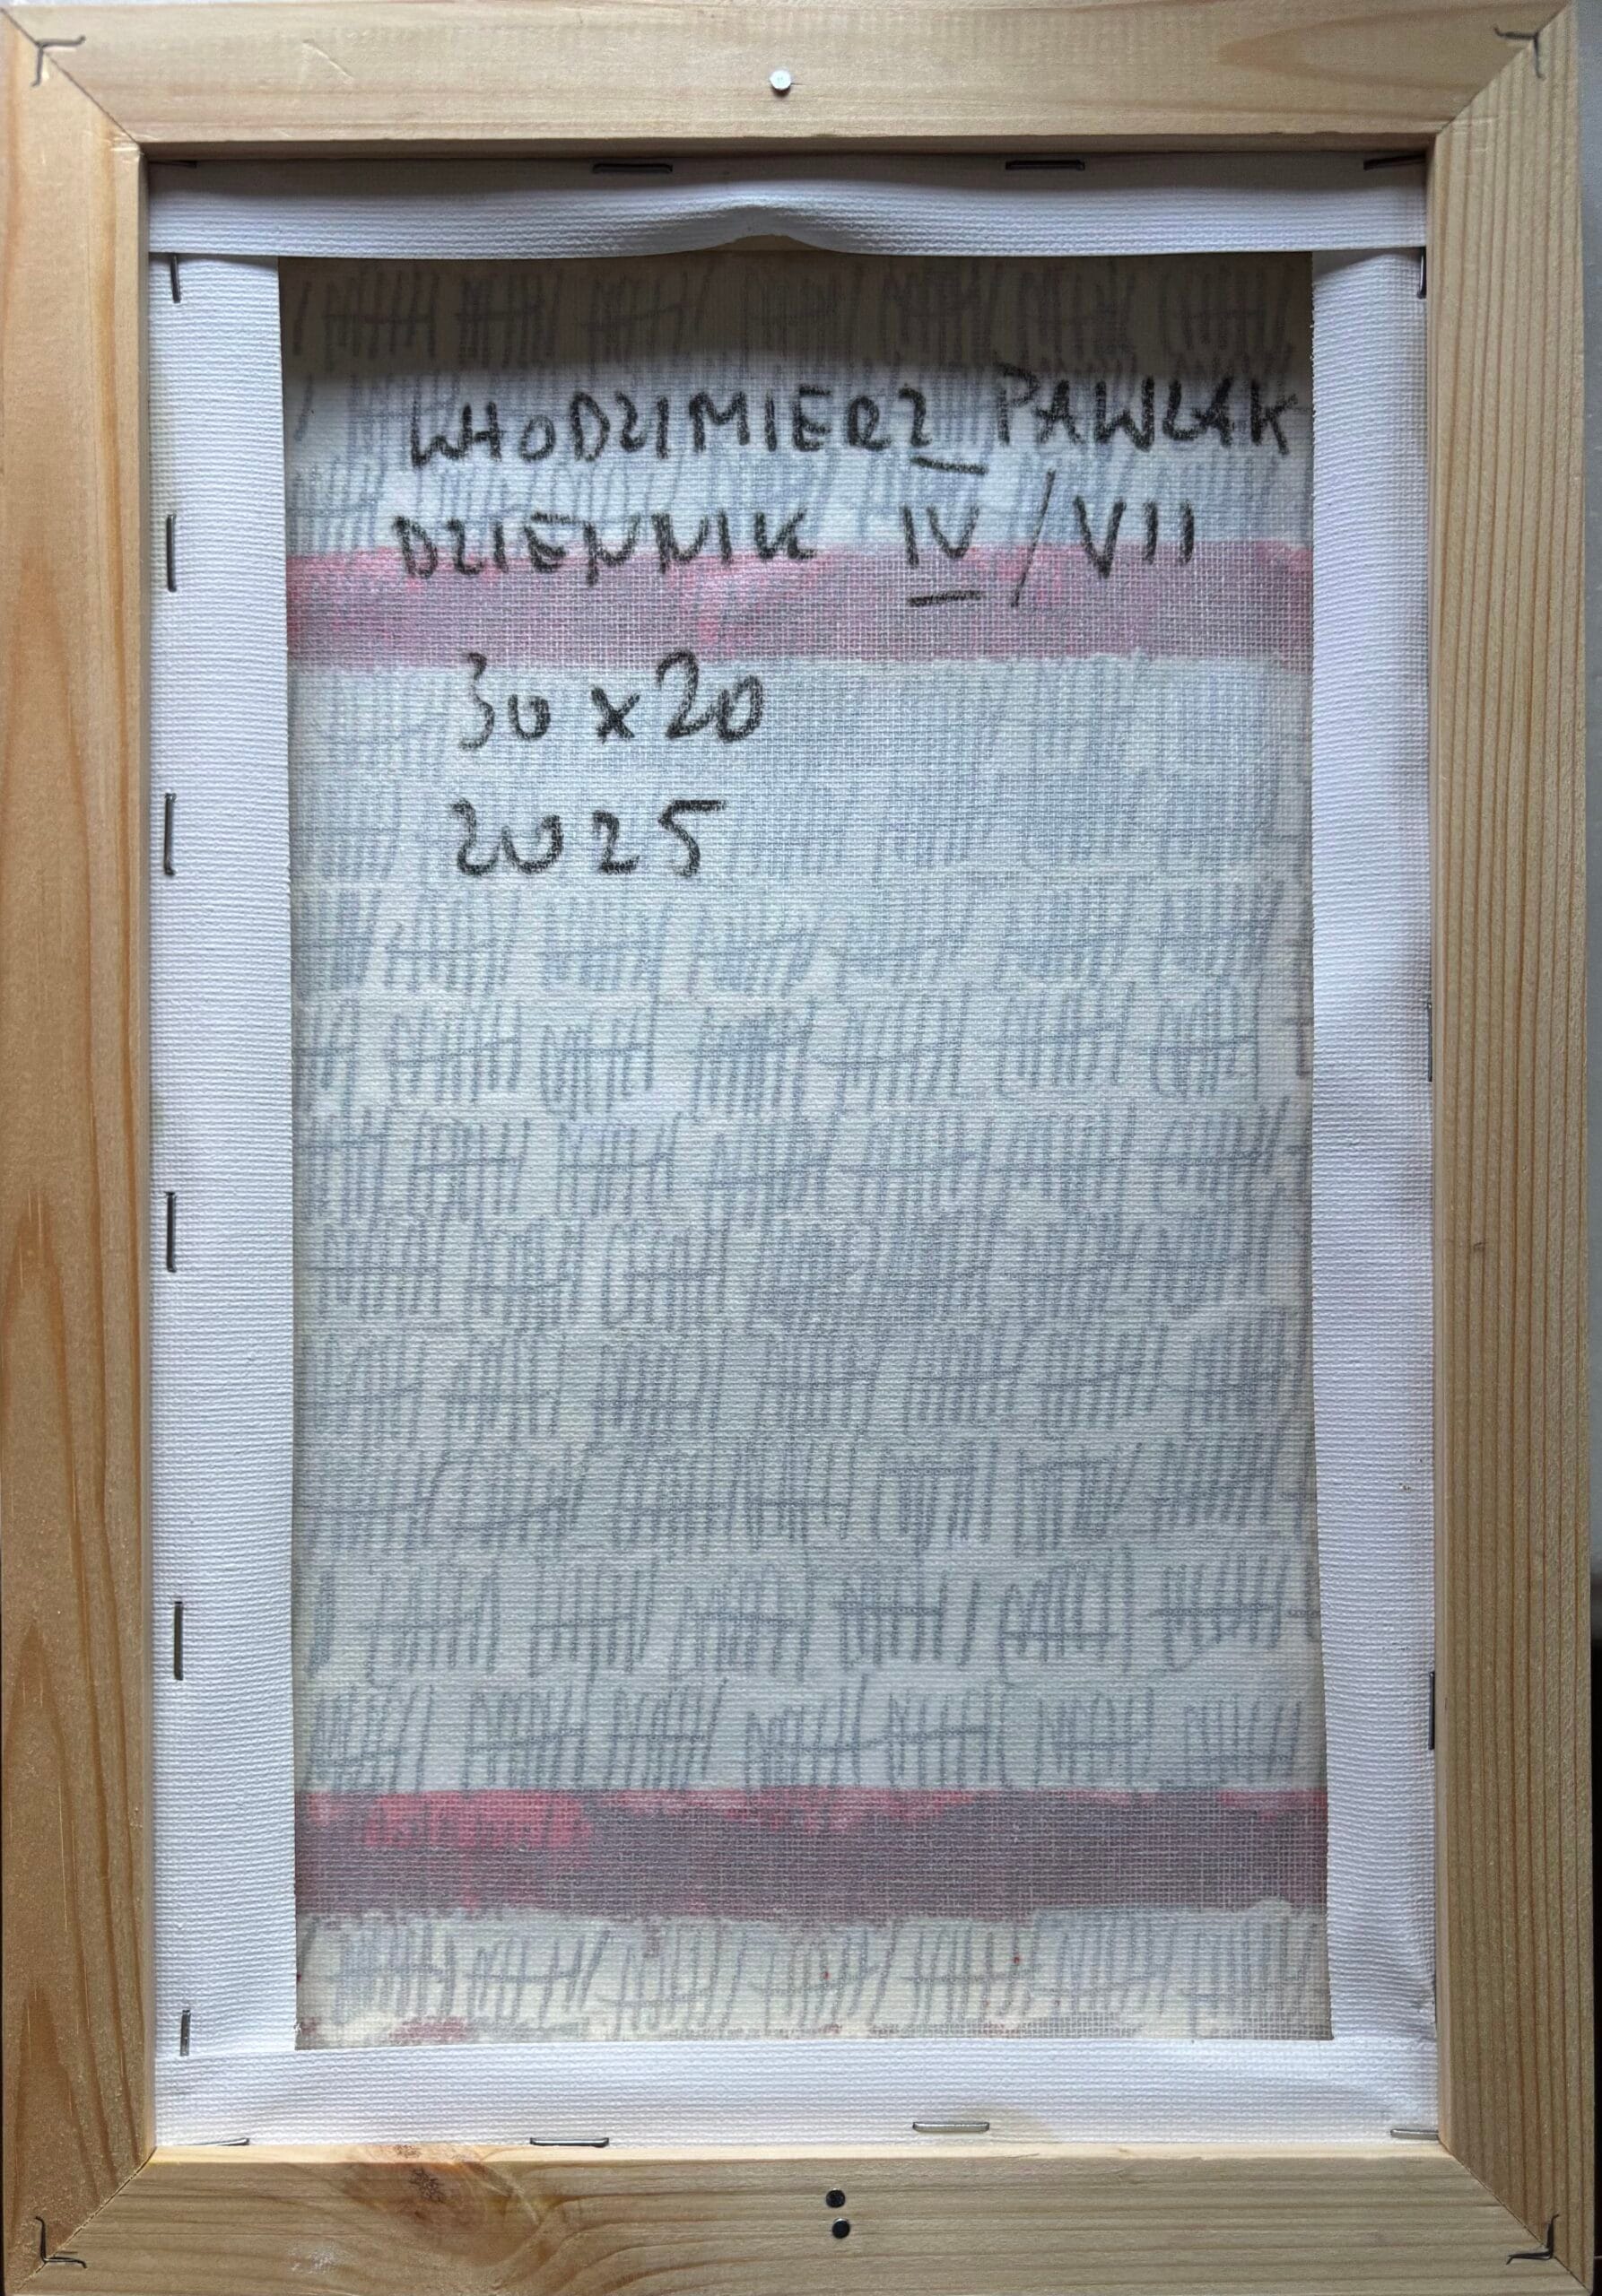 WŁODZIMIERZ PAWLAK
DZIENNIK IV/VII
30 x 20
2025